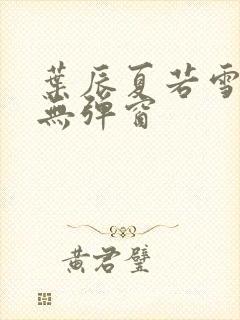 葉辰夏若雪
無彈窗
黃君璧